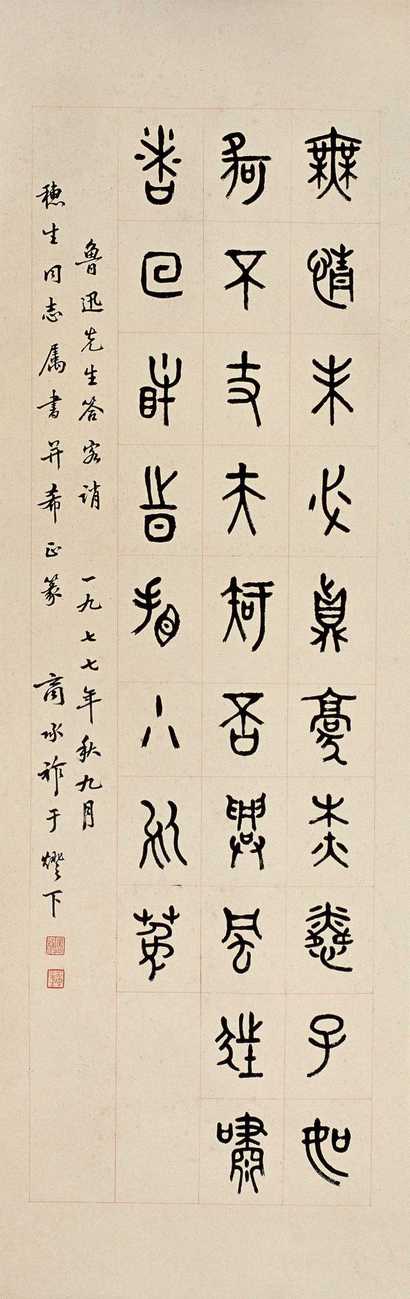 無情未必真豪杰憐子如
何不丈夫知否興風狂嘯
者回眸時看小於菟
魯迅先生答客誚 一九七七年秋九月
穗生同志属書并希正篆 商承祚于燈下